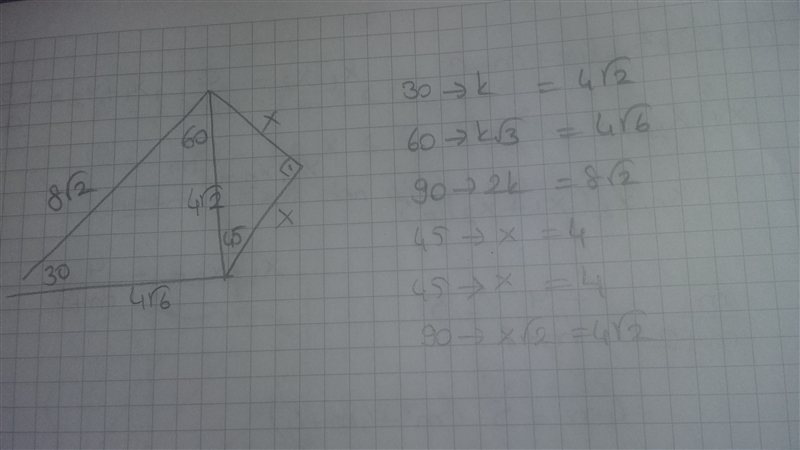 x
60
8√2
4√2
x
45
30
4√6
30 → k = 4√2
60 → k√3 = 4√6
90 → 2k = 8√2
45 → x = 4
45 → x = 4
90 → x√2 = 4√2